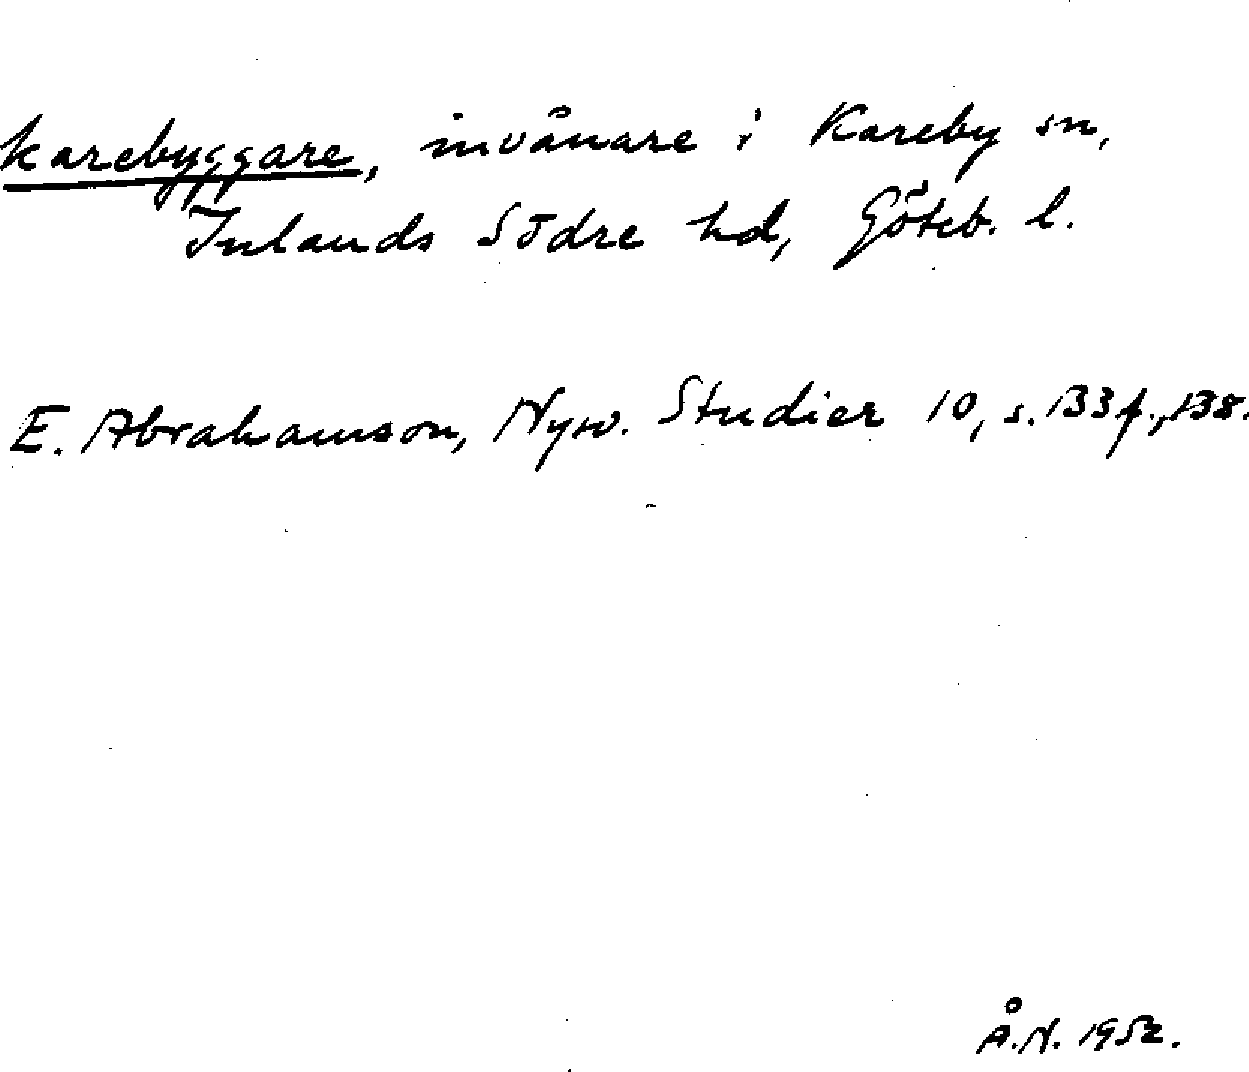 karebyggare, invånare i Kareby sn,
Inlands Södre hd, Göteb. l.
E. Abrahamson, Nysv. Studier 10, s. 133 f., 138.
Å.N. 1952.